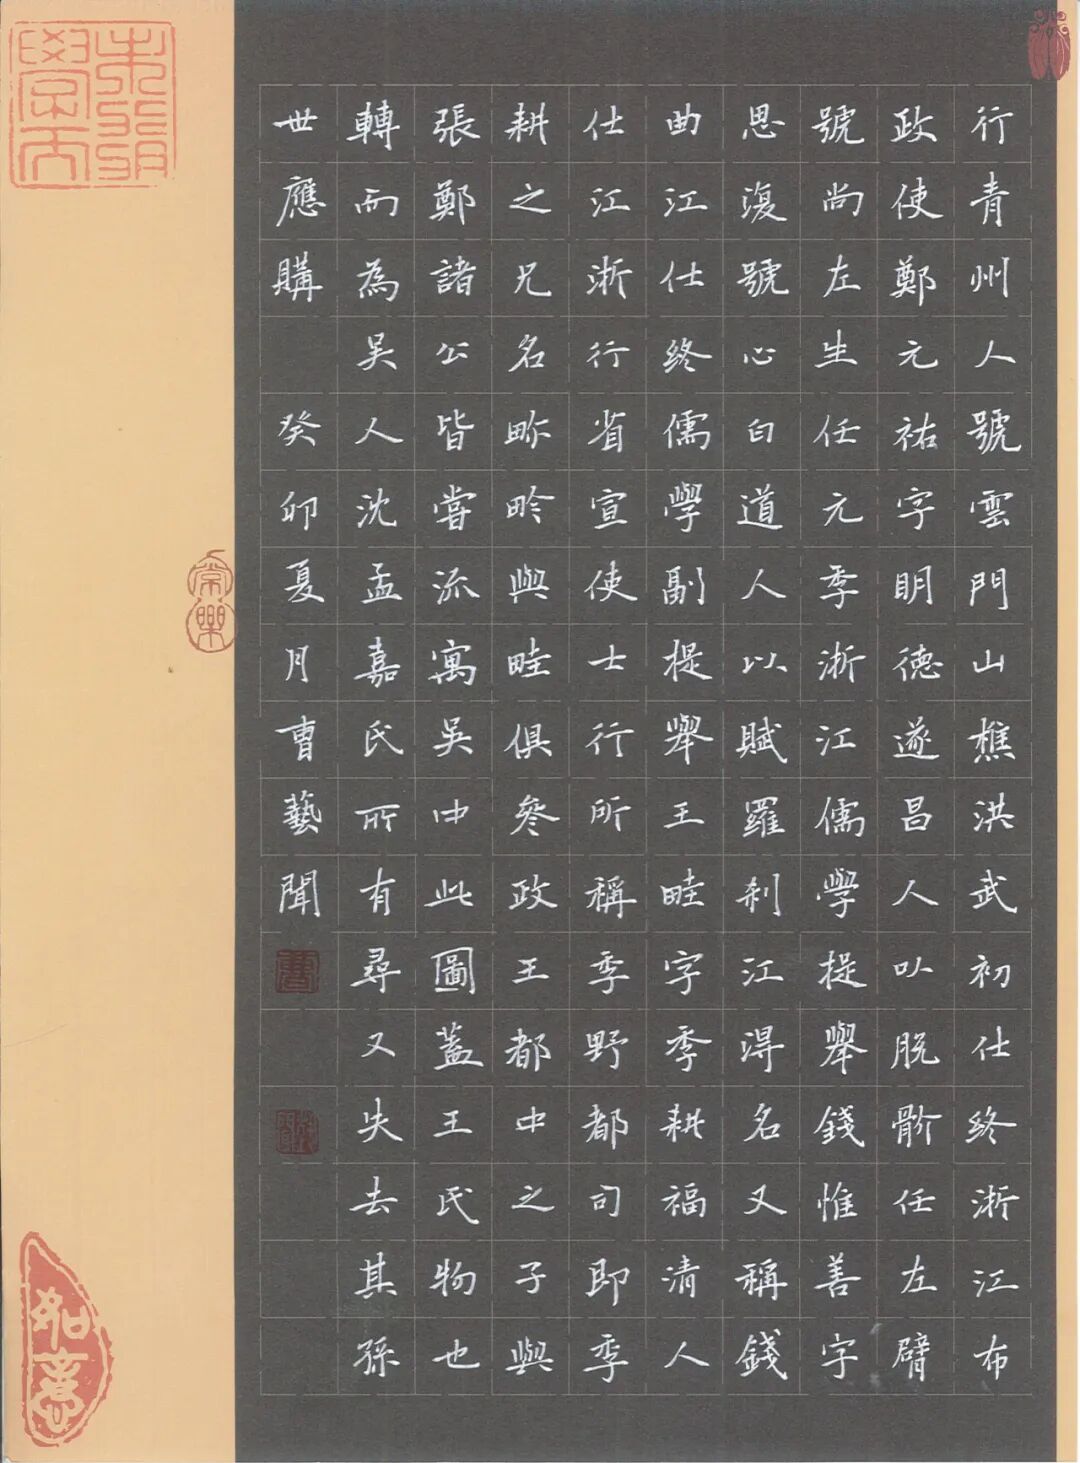 行青州人號雲門山樵洪武初仕終浙江布
政使鄭元祐字明德遂昌人以脱骱任左臂
號尚左生任元季浙江儒學提舉錢惟善字
思復號心白道人以賦羅刹江得名又稱錢
曲江仕終儒學副提舉王畦字季耕福清人
仕江浙行省宣使士行所稱季野都司即季
耕之兄名畛畛與畦俱參政王都中之子與
張鄭諸公皆嘗流寓吳中此圖蓋王氏物也
轉而為吳人沈孟嘉氏所有尋又失去其孫
世應購 癸卯夏月曹藝聞
常樂
如意